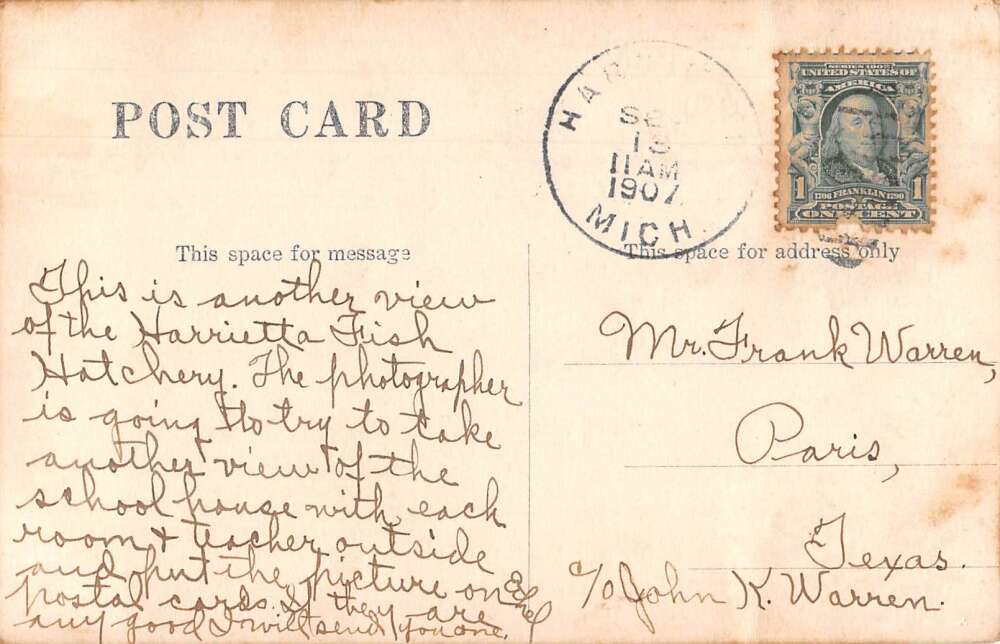 POST CARD
HAR
SE
15
11 AM
1907
MICH.
SERIES 1902
UNITED STATES OF
AMERICA
1 1706 FRANKLIN 1790 1
POSTAGE
ONE CENT
This space for message
This is another view
of the Harrietta Fish
Hatchery. The photographer
is going to try to take
another view of the
school house with each
room & teacher outside
and put the picture on
postal cards. If they are
any good I will send you one.
Ethel
This space for address only
Mr. Frank Warren,
Paris,
Texas.
c/o John K. Warren.